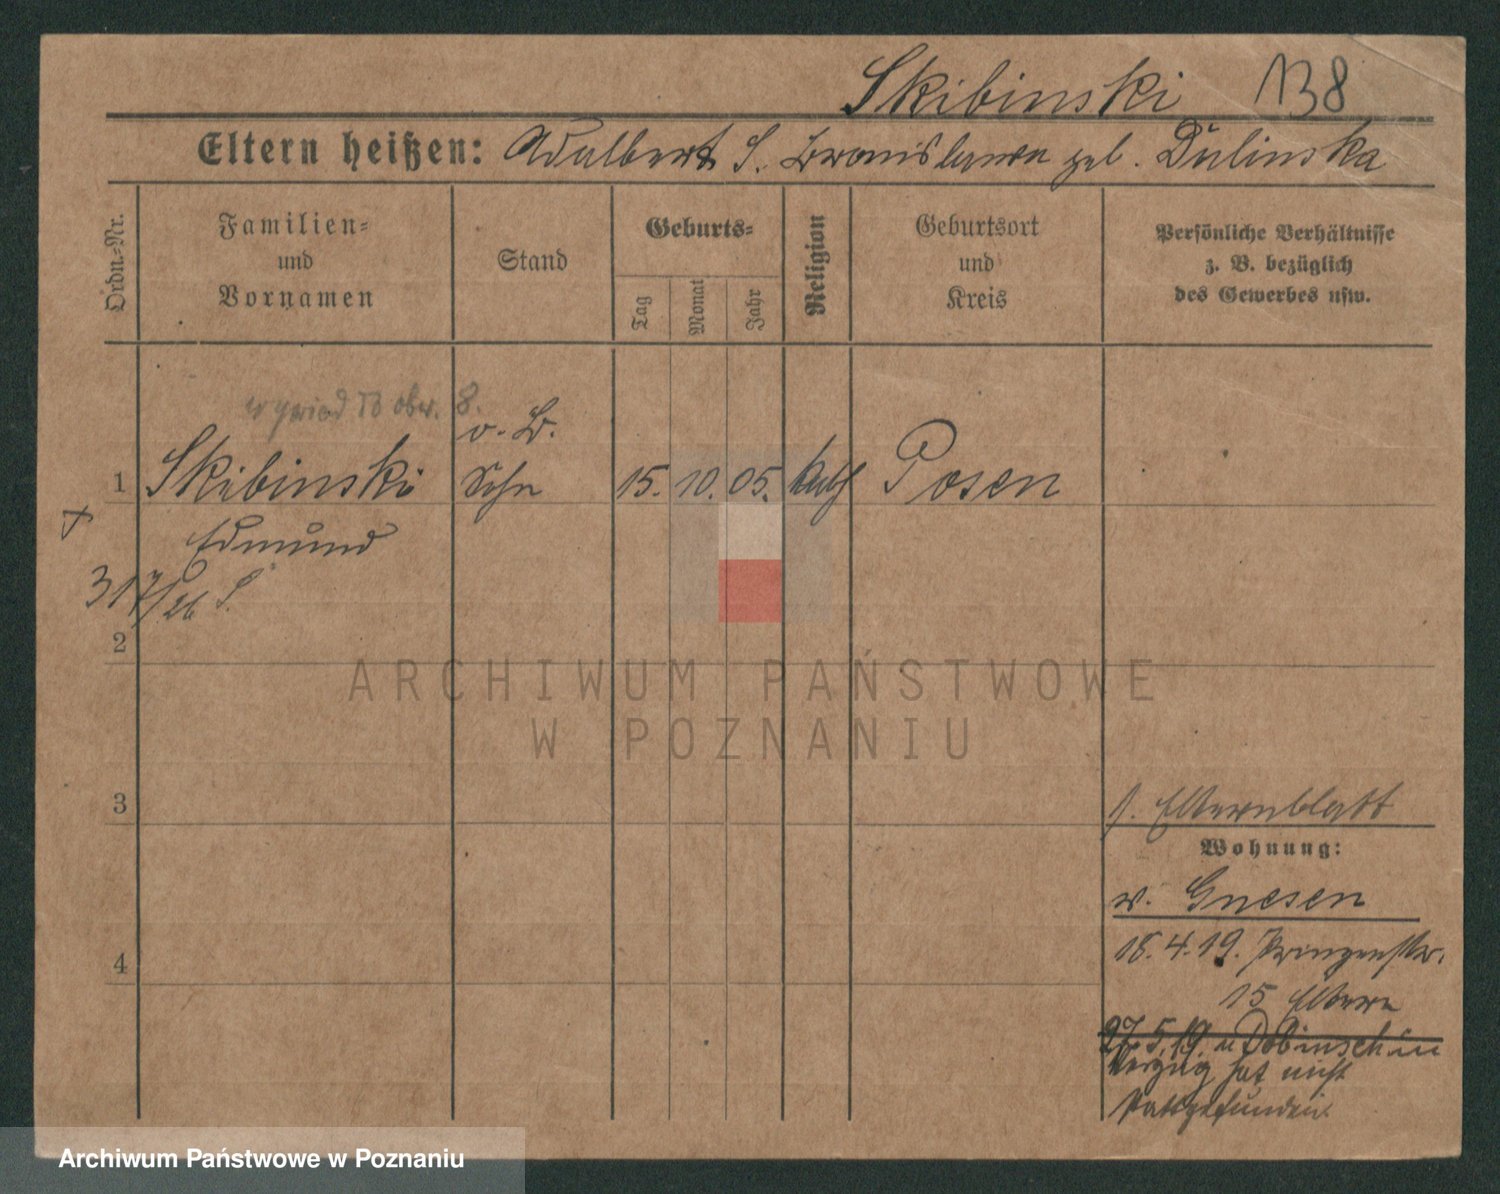 Skibinski 138
Eltern heißen: Adalbert S. Bronislawa geb. Dulinska
Ordn.=Nr.
Familien=
und
Vornamen
Stand
Geburts=
Tag
Monat
Jahr
Religion
Geburtsort
und
Kreis
Persönliche Verhältnisse
z. B. bezüglich
des Gewerbes usw.
v. B.
1 Skibinski Sohn 15. 10. 05. kath Posen
Edmund
317/26 S.
2
ARCHIWUM PAŃSTWOWE
W POZNANIU
3
s. Elternblatt
Wohnung:
v. Gnesen
4
18.4.19. Prinzenstr.
15 Eltern
27.5.19. n Dobinschin
Verzug hat nicht
stattgefunden.
Archiwum Państwowe w Poznaniu